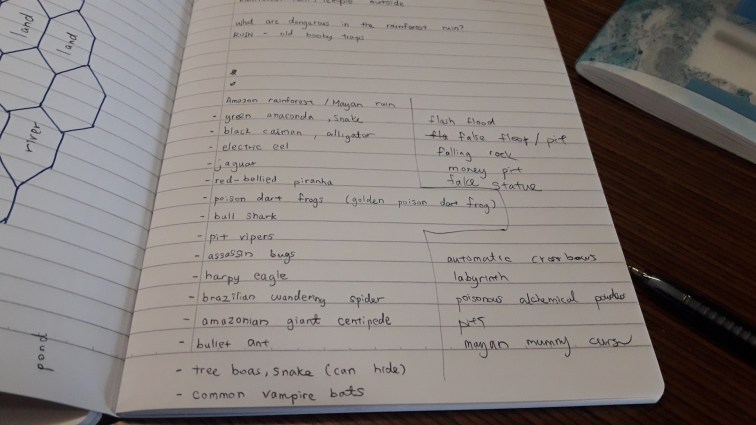 land
land
river
pond
outside
what are dangerous in the rainforest ruin?
RUIN - old booby traps
Amazon rainforest / Mayan ruin
- green anaconda, snake
- black caiman, alligator
- electric eel
- jaguar
- red-bellied piranha
- poison dart frogs (golden poison dart frog)
- bull shark
- pit vipers
- assassin bugs
- harpy eagle
- brazilian wandering spider
- amazonian giant centipede
- bullet ant
- tree boas, snake (can hide)
- common vampire bats
flash flood
false floor / pit
falling rock
money
fake statue
automatic crossbows
labyrinth
poisonous alchemical powder
mayan mummy curse